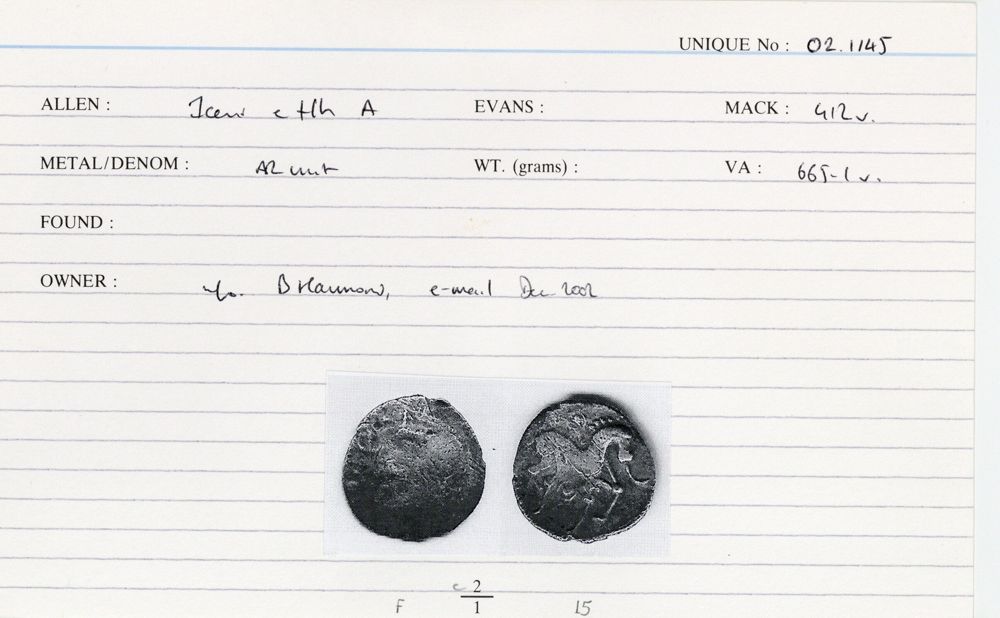 UNIQUE No : 02.1145
ALLEN : Iceni A EVANS : MACK : 412 v.
METAL/DENOM : AR unit WT. (grams) : VA : 665-1 v.
FOUND :
OWNER : info. B Hammond, e-mail Dec 2002
c 2
F 1 15